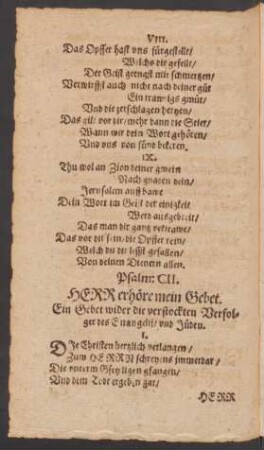 VIII.
Das Opffer hast vns fürgestelt/
Welchs dir gefellt/
Der Geist geengst mit schmertzen/
Verwirffst auch nicht nach deiner güt
Ein trawrigs gmüt/
Vnd die zerschlagen hertzen/
Das gilt vor dir/mehr dann die Stier/
Wann wir dein Wort gehören/
Vnd vns von sünd bekeren.
IX.
Thu wol an Zion deiner gmein
Nach gnaden dein/
Jerusalem auff bawe
Dein Wort im Geist der einigkeit
Werd ausgebreit/
Das man dir gantz vertrawe/
Das vor dir sein/die Opffer rein/
Welch du dir lessst gefallen/
Von deinen Dienern allen.
Psalm: CII.
HERR erhöre mein Gebet.
Ein Gebet wider die verstockten Verfol-
ger des Euangelij/vnd Jüden.
I.
DJe Christen hertzlich verlangen/
Zum HERRN schreyens immerdar/
Die vnterm gfangen/
Vnd dem Todt ergeben gar/
HERR